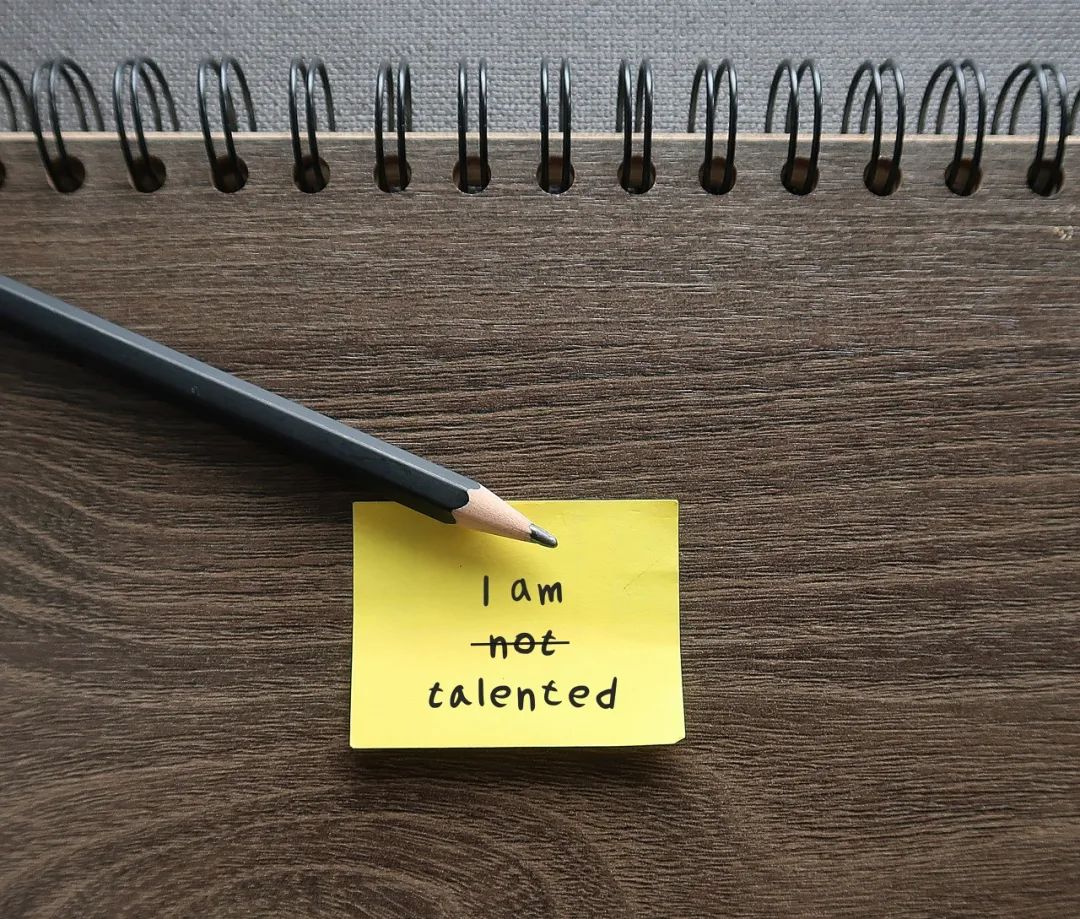 I am
~~not~~
talented